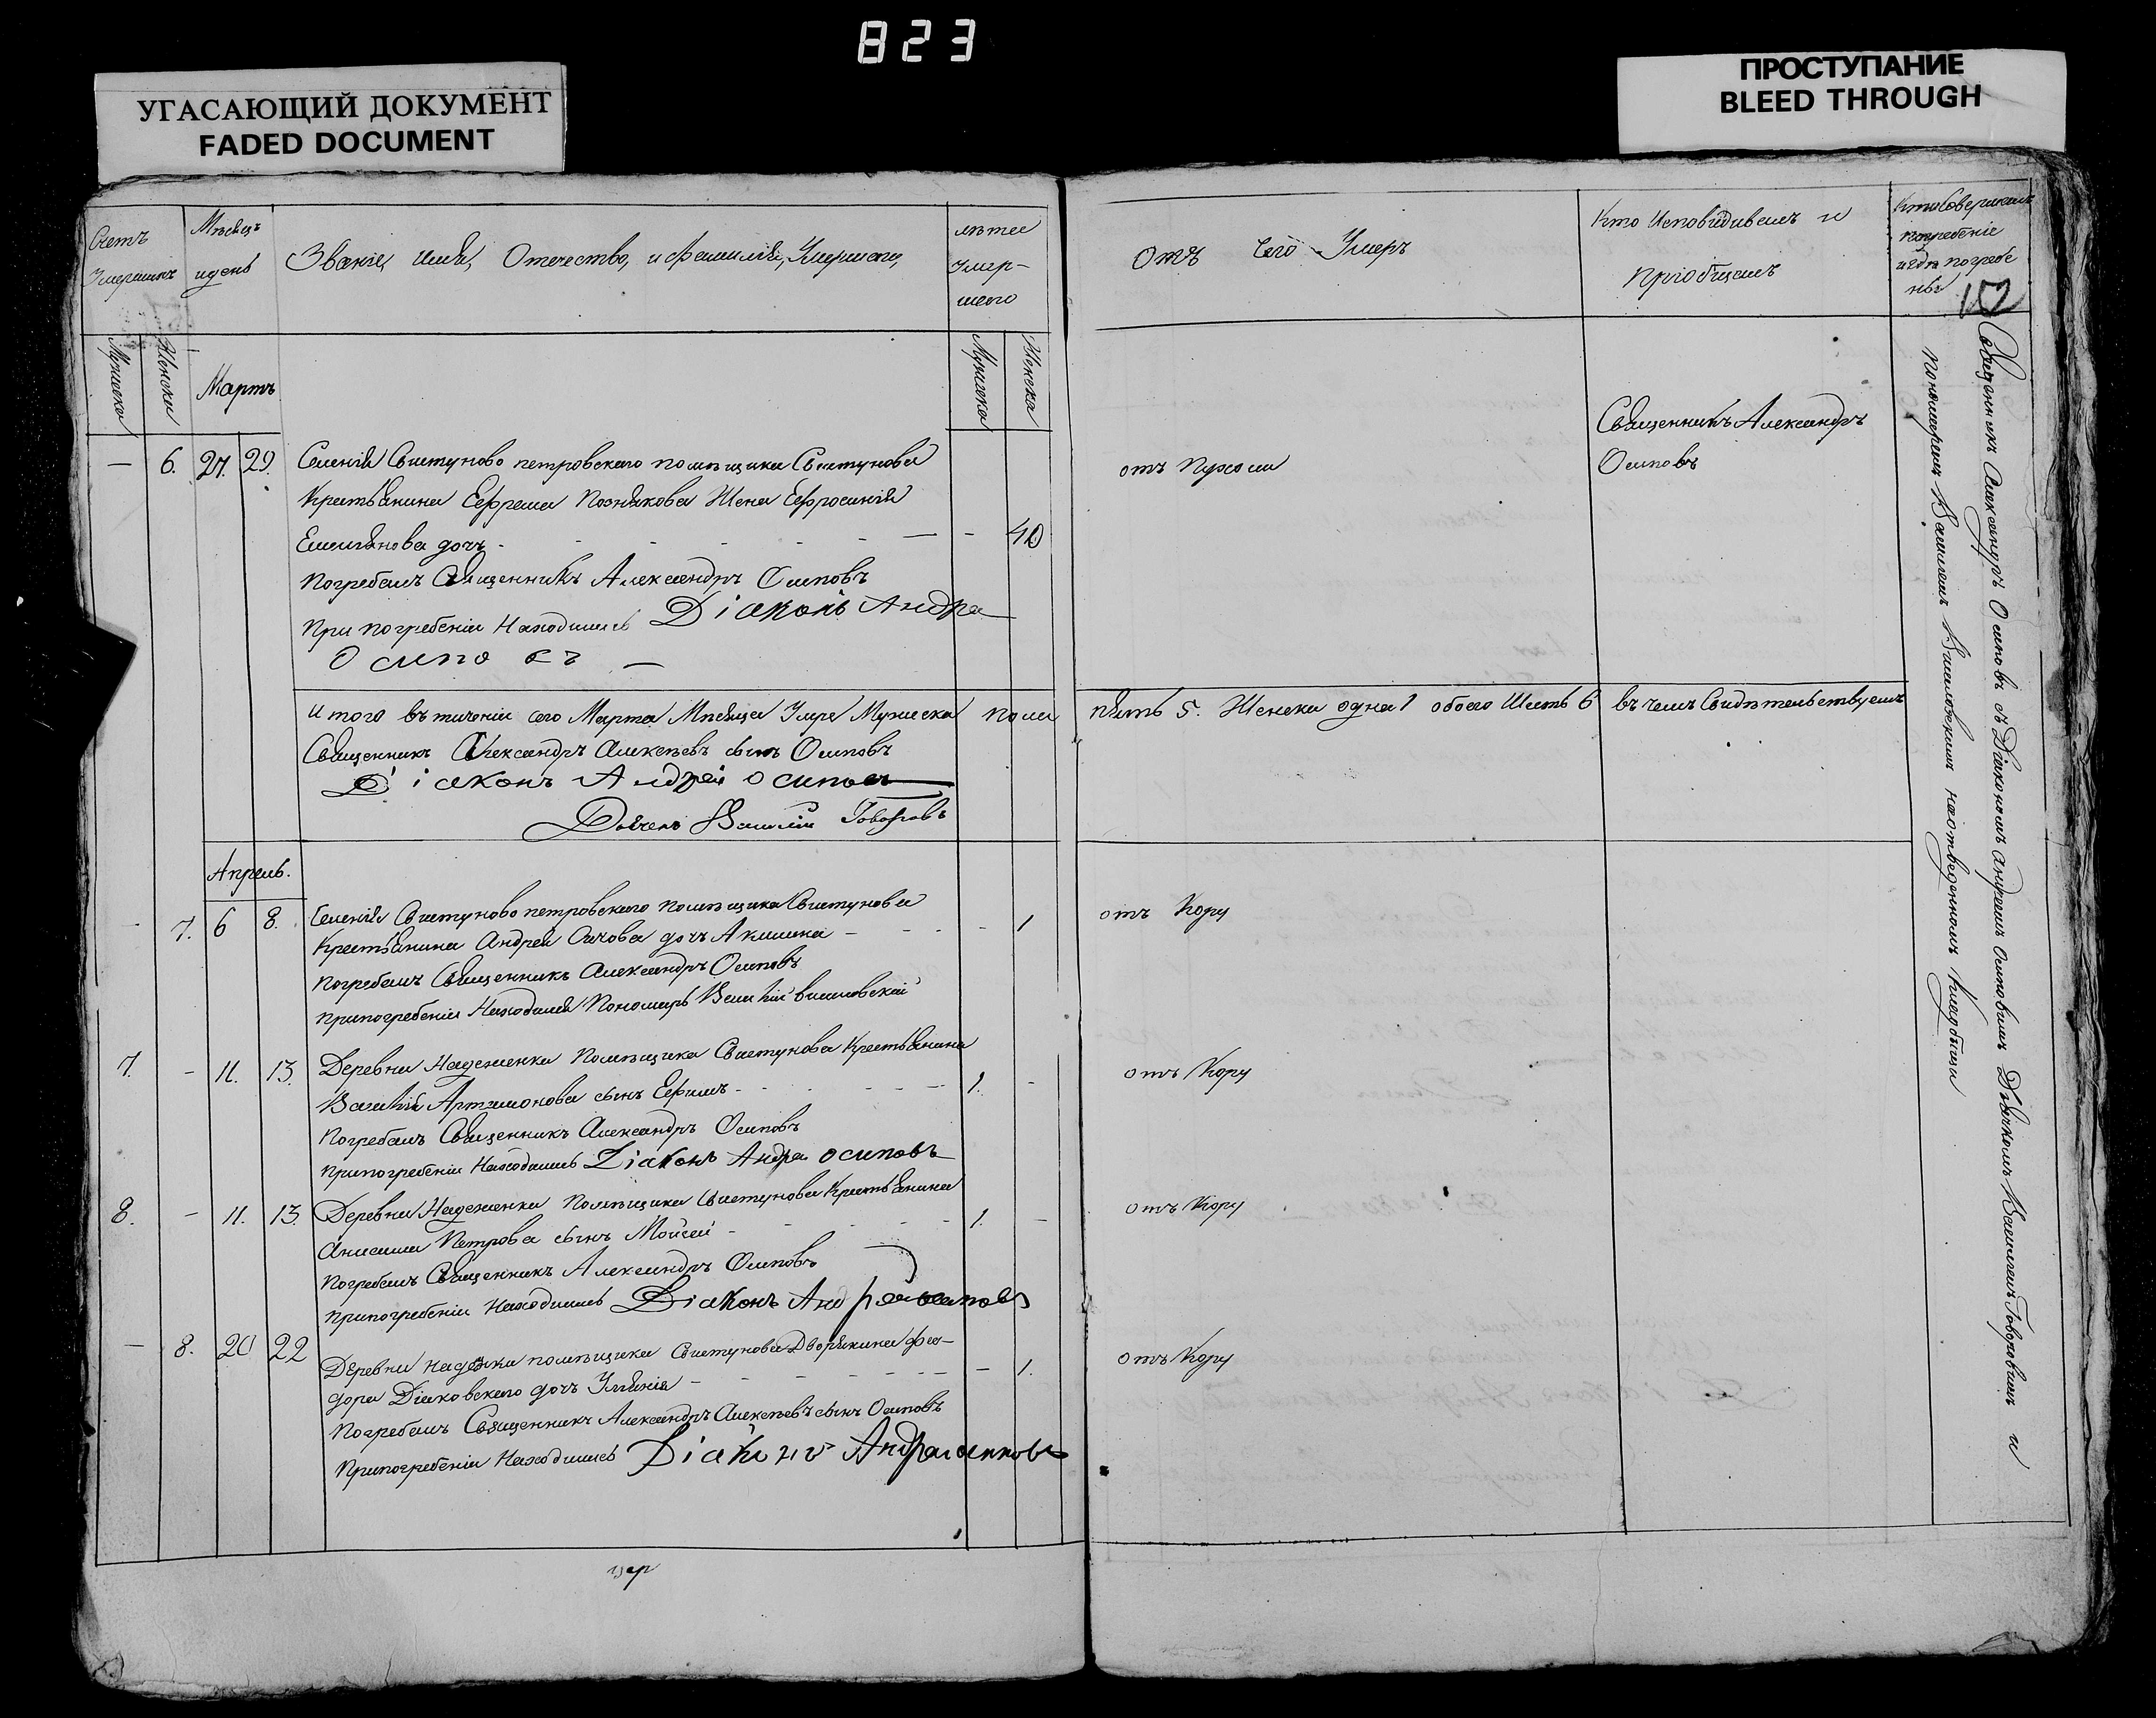 823
УГАСАЮЩИЙ ДОКУМЕНТ
FADED DOCUMENT
ПРОСТУПАНИЕ
BLEED THROUGH
Счетъ Умершихъ
Мѣсяцъ и день
Званіе, Имя, Отечество, и Фамилія, Умершаго,
лѣта Умершаго
Отъ Чего Умеръ
Кто Исповѣдывалъ и
Пріобщалъ
Кто Совершалъ
погребеніе
и гдѣ погребе
ны
152
Мужеска Женска Мартъ Мужеска Женска
— 6. 27. 29. Селенія Свистуново петровскаго помѣщика Свистунова
Крестьянина Ефрема Познякова Жена Ефросинія
Емельянова дочь - - - - - - 40
отъ
Священникъ Александръ
Осиповъ
Погребалъ Священникъ Александръ Осиповъ
При погребеніи Находились Діаконъ Андре
Осиповъ —
Итого въ теченіи сего Марта Мѣсяца Умре Мужеска пола пять 5. Женска одна 1 обоего Шесть 6 въ чемъ Свидѣтельствуемъ
Священникъ Александръ Алексѣевъ сынъ Осиповъ
Діаконъ Андрей Осиповъ
Дьячекъ Василій Говоровъ
Апрель.
- 7. 6 8. Селенія Свистуново петровскаго помѣщика Свистунова
Крестьянина Андрея дочь Акилина - - - 1 отъ Кору
Погребалъ Священникъ Александръ Осиповъ
при погребеніи Находился Пономарь Василій
7. - 11. 13. Деревни Надеженки Помѣщика Свистунова Крестьянина
Василія Артамонова сынъ Ефимъ - - - 1. - отъ Кору
Погребалъ Священникъ Александръ Осиповъ
при погребеніи Находились Діаконъ Андре Осиповъ
8. - 11. 13. Деревни Надеженки Помѣщика Свистунова Крестьянина
Анисима Петрова сынъ Мойсей - - - 1. - отъ Кору
Погребалъ Священникъ Александръ Осиповъ
при погребеніи Находились Діаконъ Андрей Осиповъ
— 8. 20 22 Деревни помѣщика Свистунова Дворянина Фео-
дора Діаковскаго дочь Уліянія - - - 1. отъ Кору
Погребалъ Священникъ Александръ Алексѣевъ сынъ Осиповъ
При погребеніи Находились Діаконъ Андре Осиповъ
Священникъ Александръ Осиповъ съ Діакономъ Андреемъ Осиповымъ Дьячкомъ Василіемъ Говоровымъ и
Пономаремъ Василіемъ на отведенномъ Кладбищи